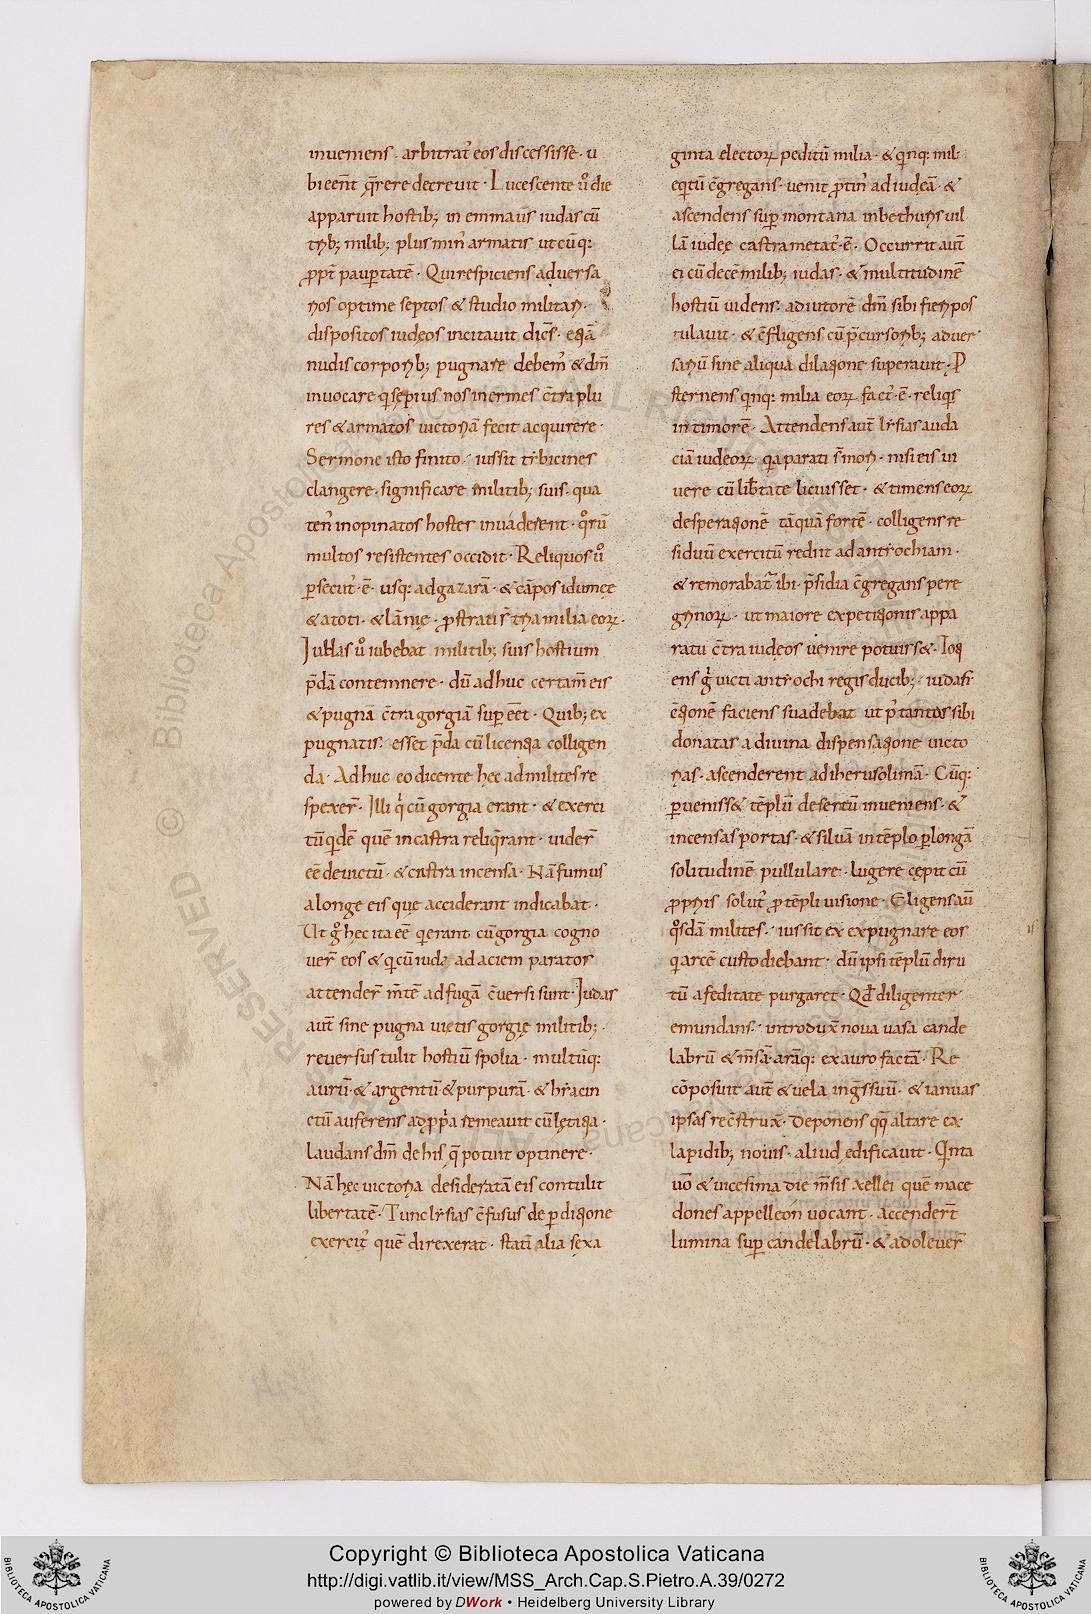 inueniens · arbitrat᷑ eos discessisse · u
bi eent̄ q̄rere decreuit · Lucescente u͛o die
apparuit hostib; in emmaūs iudas cū
trib; milib; plus min᷑ armatis ut cūq:
ꝓpt̄ paup̱tatē · Qui respiciens aduersa
rios optime septos & studio militari ·
dispositos iudeos incitauit dic̄s · eq̄a
nudis corporib; pugnare debem᷑ & dm̄
inuocare · q sepius nos inermes c̄tra plu
res & armatos uictoriā fecit acquirere ·
Sermone isto finito · iussit tubicines
clangere · significare militib; suis · qua
ten᷑ inopinatos hostes inuaderent · qͦrū
multos resistentes occidit · Reliquos u͛o
p̱secut᷑ · ē · usq: ad gazarā · & cāpos idumee
& azoti · & iāniȩ · ꝓstratis tria milia eoꝝ ·
Iudas u͛o iubebat militib; suis hostium
p̄dā contemnere · dū adhuc certam̄ eis
& pugnā c̄tra gorgiā sup̱ eēt · Quib; ex
pugnatis · esset p̄da cū licentia colligen
da · Adhuc eo dicente hȩc ad milites re
spexer̄ · Illi qͥ cū gorgia erant · & exerci
tū qidē quē in castra reliq̄rant · uider̄
eē deuictū · & castra incensa · Nā fumus
a longe eis que acciderant indicabat ·
Ut g͛ hec ita eē qi erant cū gorgia cogno
uer̄ eos & qi cū iuda ad aciem parator
attender̄ m̄tē ad fugā c̄uersi sunt · Iudas
aut̄ sine pugna uictis gorgiȩ militib; ·
reuersus tulit hostiū spolia · multūq:
aurū · & argentū & purpurā · & hiacin
ctū auferens ad ꝓpͥa remeauit cū lȩtitia ·
laudans dm̄ de his q̄ potuit optinere ·
Nā hȩc uictoria desideratā eis contulit
libertatē · Tunc lisias c̄fusus de p̱ditione
exercit᷑ quē direxerat · statī alia sexa
ginta electoꝝ peditū milia · & qinq: mil·
eqitū c̄gregans · uenit ꝓtin᷑ ad iudȩā · &
ascendens sup̱ montana in bethuris uil
lā iudeȩ castra metat᷑ · ē · Occurrit aut̄
ei cū decē milib; iudas · & multitudinē
hostiū uidens · adiutorē dm̄ sibi fieri pos
tulauit · & c̄fligens cū p̄cursorib; aduer
sariū sine aliqua dilatione superauit · P
sternens qinq: milia eoꝝ fact᷑ · ē · reliqͥs
in timorē · Attendens aut̄ lisias auda
ciā iudeoꝝ qa parati s̄ mori · nisi eis ui
uere cū lib̄tate licuisset · & timens eoꝝ
desperationē tāquā fortē · colligens re
siduū exercitū rediit ad antiochiam ·
& remorabat᷑ ibi · p̄sidia c̄gregans pere
grinoꝝ · ut maiore expetitionis appa
ratu c̄tra iudeos uenire potuiss& · Ioq
ens g͛ uicti antiochi regis ducib; · iudas
c̄tionē faciens suadebat ut p᷑ tantos sibi
donatas a diuina dispensatione uicto
rias · ascenderent ad iherusolimā · Cūq:
p̱ueniss& tēplū desertū inueniens · &
incensas portas · & siluā in tēplo p̱ longā
solitudinē pullulare · lugere cȩpit cū
ꝓpriis solut᷑ ꝓ tēpli uisione · Eligens aū
qͦsdā milites · iussit ex expugnare eos
qi arcē custodiebant · dū ipsi tēplū diru
tū a feditate purgaret · Qd̄ diligenter
emundans · introdux̄ noua uasa cande
labrū & m̄sā · arāq: ex auro factā · Re
cōposuit aut̄ & uela inḡssuū · & ianuas
ipsas rec̄strux̄ · Deponens qq̄ altare ex
lapidib; nouis · aliud ȩdificauit · Qinta
uō & uicesima die m̄sis xellei quē mace
dones appelleon uocant · accender̄t
lumina sup̱ candelabrū · & adoleuer̄
is
Copyright © Biblioteca Apostolica Vaticana
http://digi.vatlib.it/view/MSS_Arch.Cap.S.Pietro.A.39/0272
powered by DWork • Heidelberg University Library